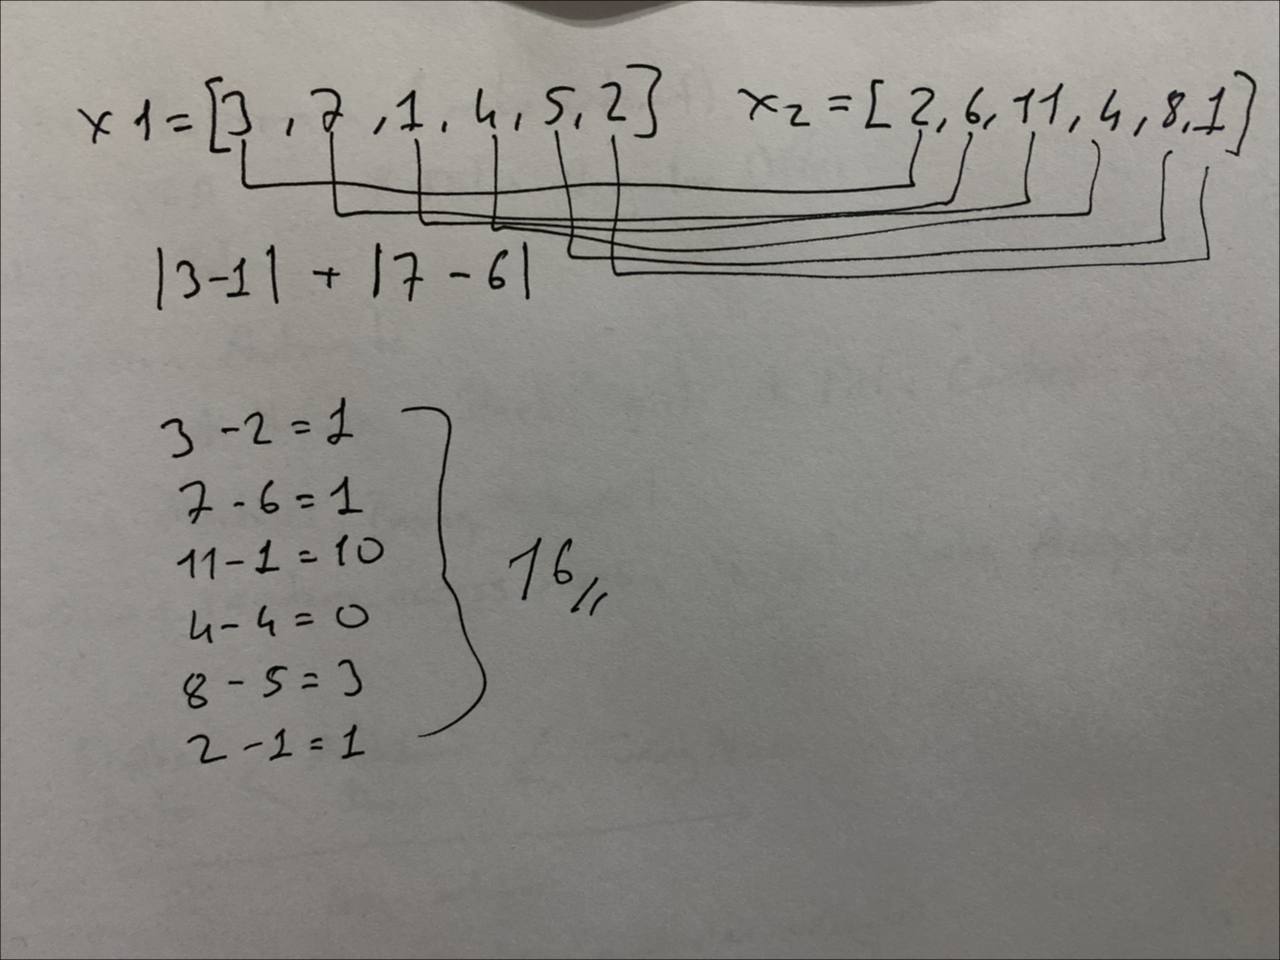 x1=[3,7,1,4,5,2] x2=[2,6,11,4,8,1]
|3-1| + |7-6|
3-2=1
7-6=1
11-1=10
4-4=0
8-5=3
2-1=1
16//